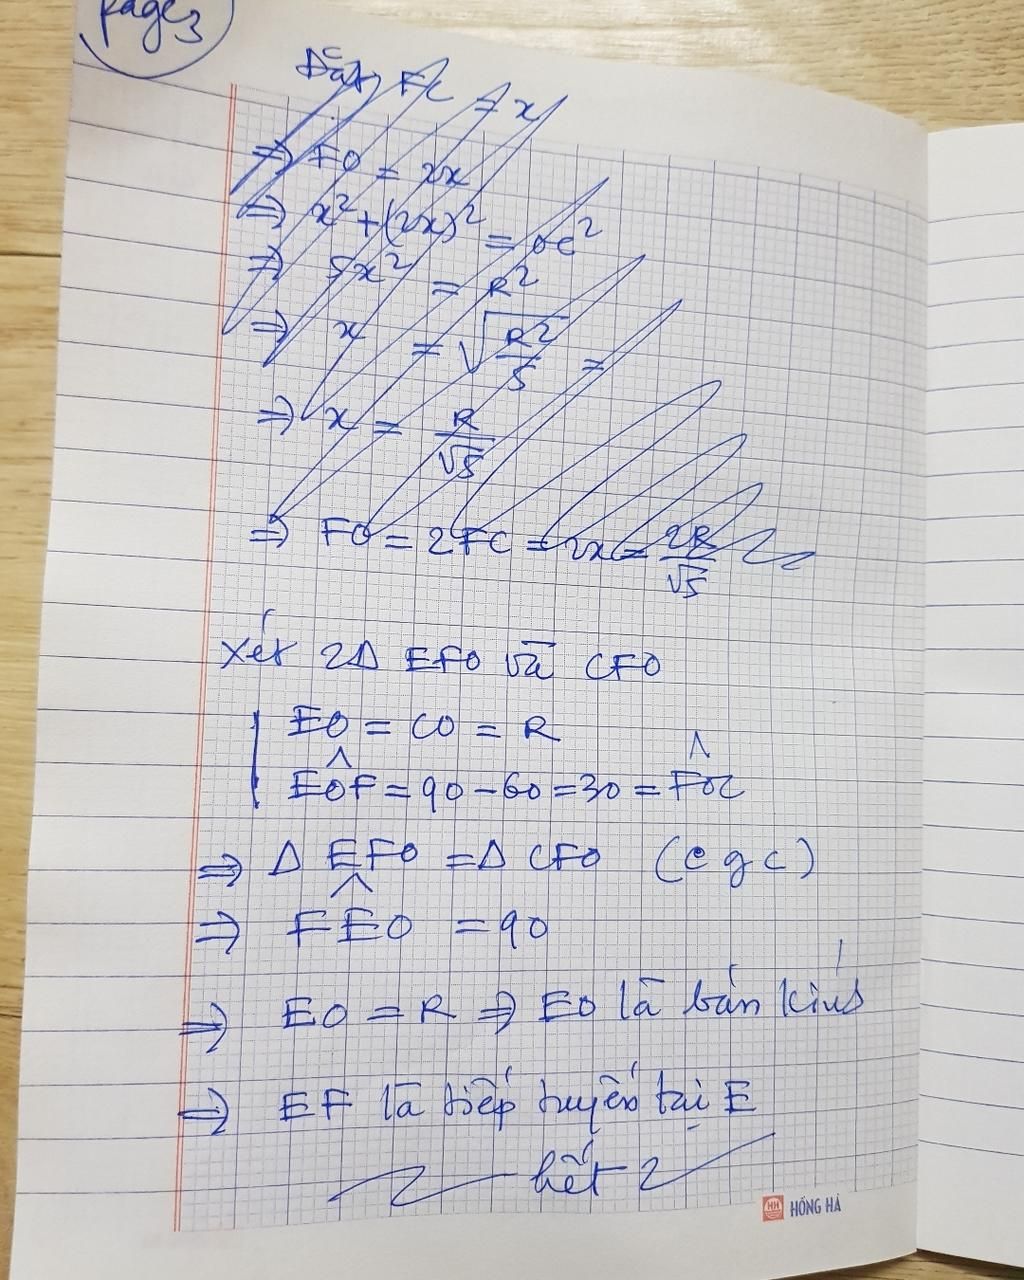 page 3
Đặt FC = x
⇒ FO = 2x
⇒ x² + (2x)² = OC²
⇒ 5x² = R²
⇒ x = √(R²/5) =
⇒ x = R/√5
⇒ FO = 2FC = 2x = 2R/√5
Xét 2Δ EFO và CFO
EO = CO = R
EÔF = 90 - 60 = 30 = FÔC
⇒ Δ EFO = Δ CFO (c g c)
⇒ FÊO = 90
⇒ EO = R ⇒ EO là bán kính
⇒ EF là tiếp tuyến tại E
hết
HỒNG HÀ